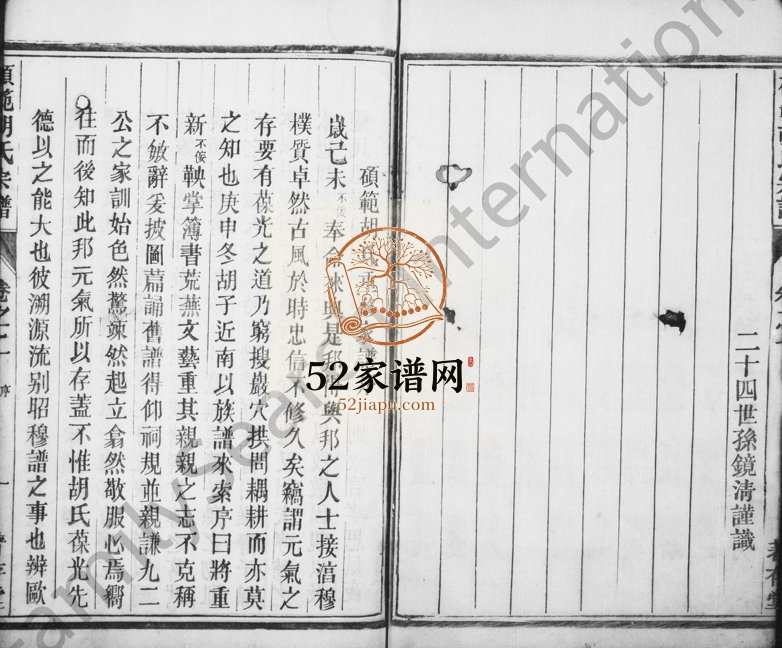 二十四世孫鏡清謹識
碩範胡氏
歲己未不佞奉 是邦 與邦之人士接湻穆
樸質卓然古風於時忠信不修久矣竊謂元氣之
存要有葆光之道乃窮搜巖穴拱問耦耕而亦莫
之知也庚申冬胡子近南以族譜來索序曰將重
新不佞鞅掌簿書荒蕪文藝重其親親之志不克稱
不敏辭爰披圖葛誦舊譜得仰祠規並親謙九二
公之家訓始色然驚竦然起立翕然敬服心焉嚮
往而後知此邦元氣所以存蓋不惟胡氏葆光先
德以之能大也彼溯源流别昭穆譜之事也辨歐
碩範胡氏宗譜
卷之一 序
52家谱网
52jiapu.com
FamilySearch International